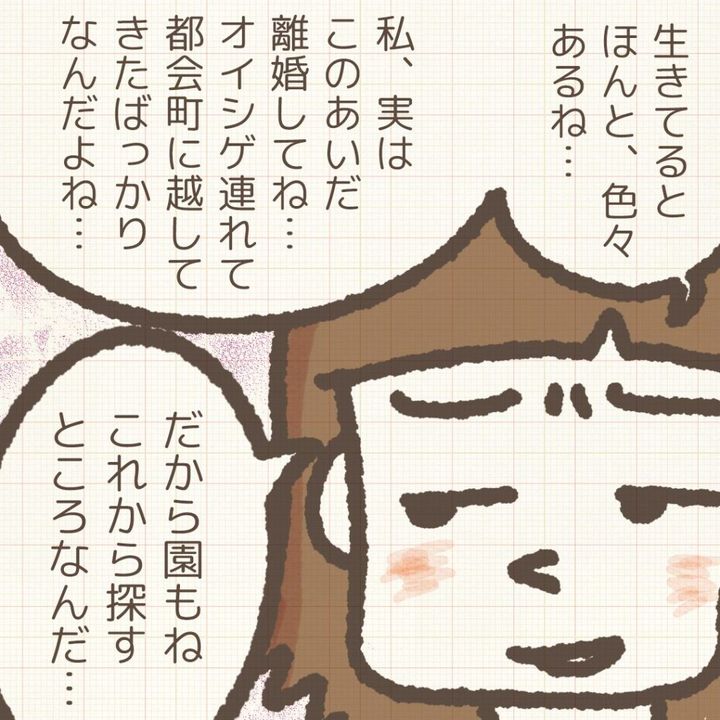 生きてると
ほんと、色々
あるね…
私、実は
このあいだ
離婚してね…
オイシゲ連れて
都会町に越して
きたばっかり
なんだよね…
だから園もね
これから探す
ところなんだ…